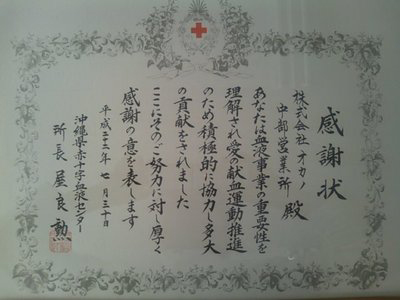 感謝状
株式会社オカノ
中部営業所 殿
あなたは血液事業の重要性を
理解され愛の献血運動推進
のため積極的に協力し多大
の貢献をされました
ここにそのご努力に対し厚く
感謝の意を表します
平成二十二年 七月三十日
沖縄県赤十字血液センター
所長 屋良 勲